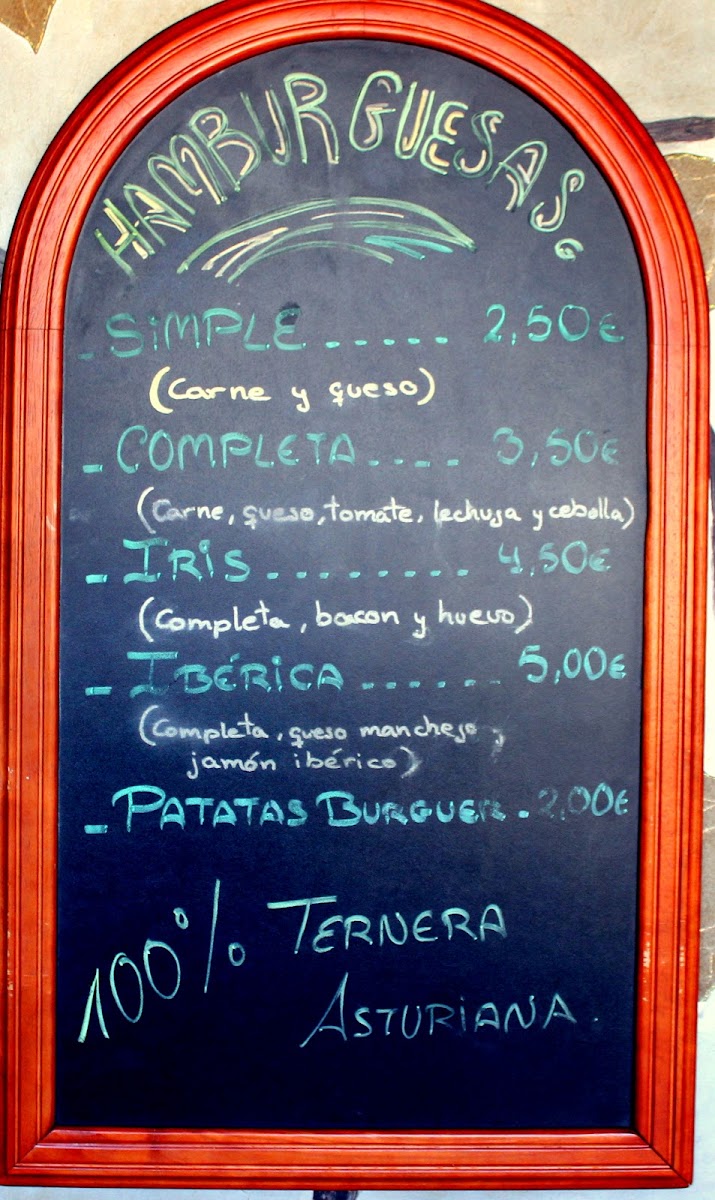 HAMBURGUESAS
- SIMPLE ..... 2,50€
(Carne y queso)
- COMPLETA .... 3,50€
(Carne, queso, tomate, lechuja y cebolla)
- IRIS ......... 4,50€
(Completa, bacon y huevo)
- IBÉRICA ...... 5,00€
(Completa, queso manchego y
jamón ibérico)
- PATATAS BURGUER . 2,00€
100% TERNERA
ASTURIANA.